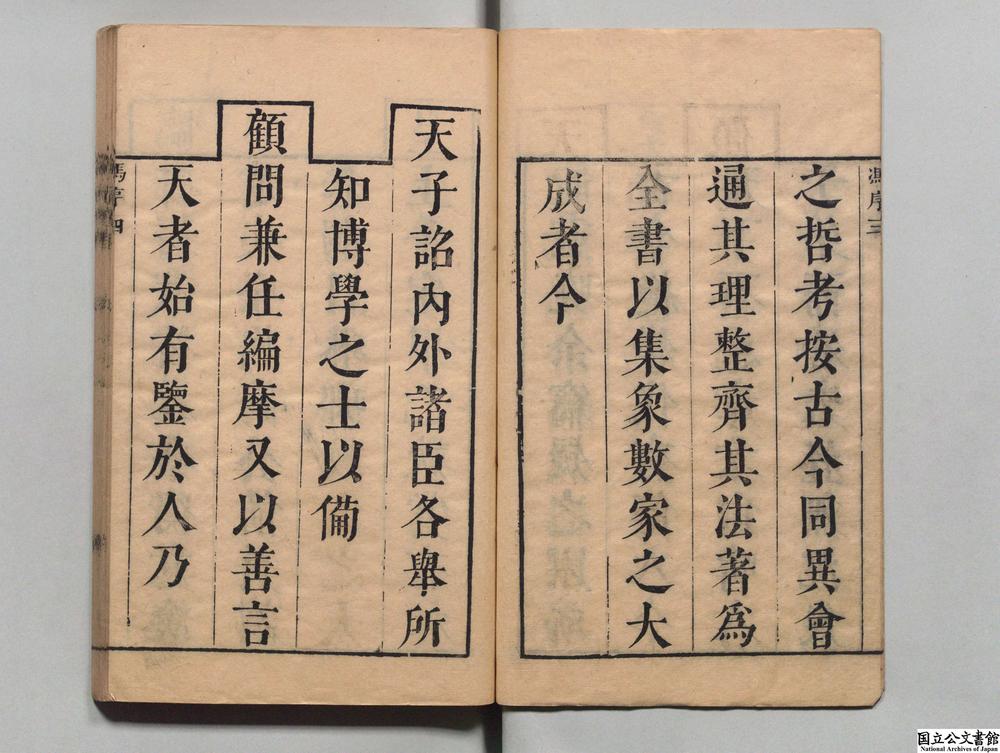 馮序三
之哲考按古今同異會
通其理整齊其法著爲
全書以集象數家之大
成者今
天子詔內外諸臣各舉所
知博學之士以備
顧問兼任編摩又以善言
天者始有鑒於人乃
馮序四
国立公文書館
National Archives of Japan